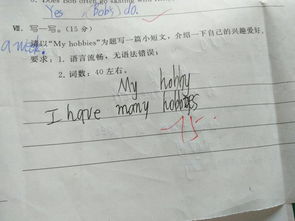 5. Does Bob often go skating with
Yes Bobs do.
Ⅶ. 写一写。(15 分)
a week.
请以“My hobbies”为题写一篇小短文,介绍一下自己的兴趣爱好。
要求:1. 语言流畅,无语法错误;
2. 词数:40 左右。
My hobby
I have many hobbies